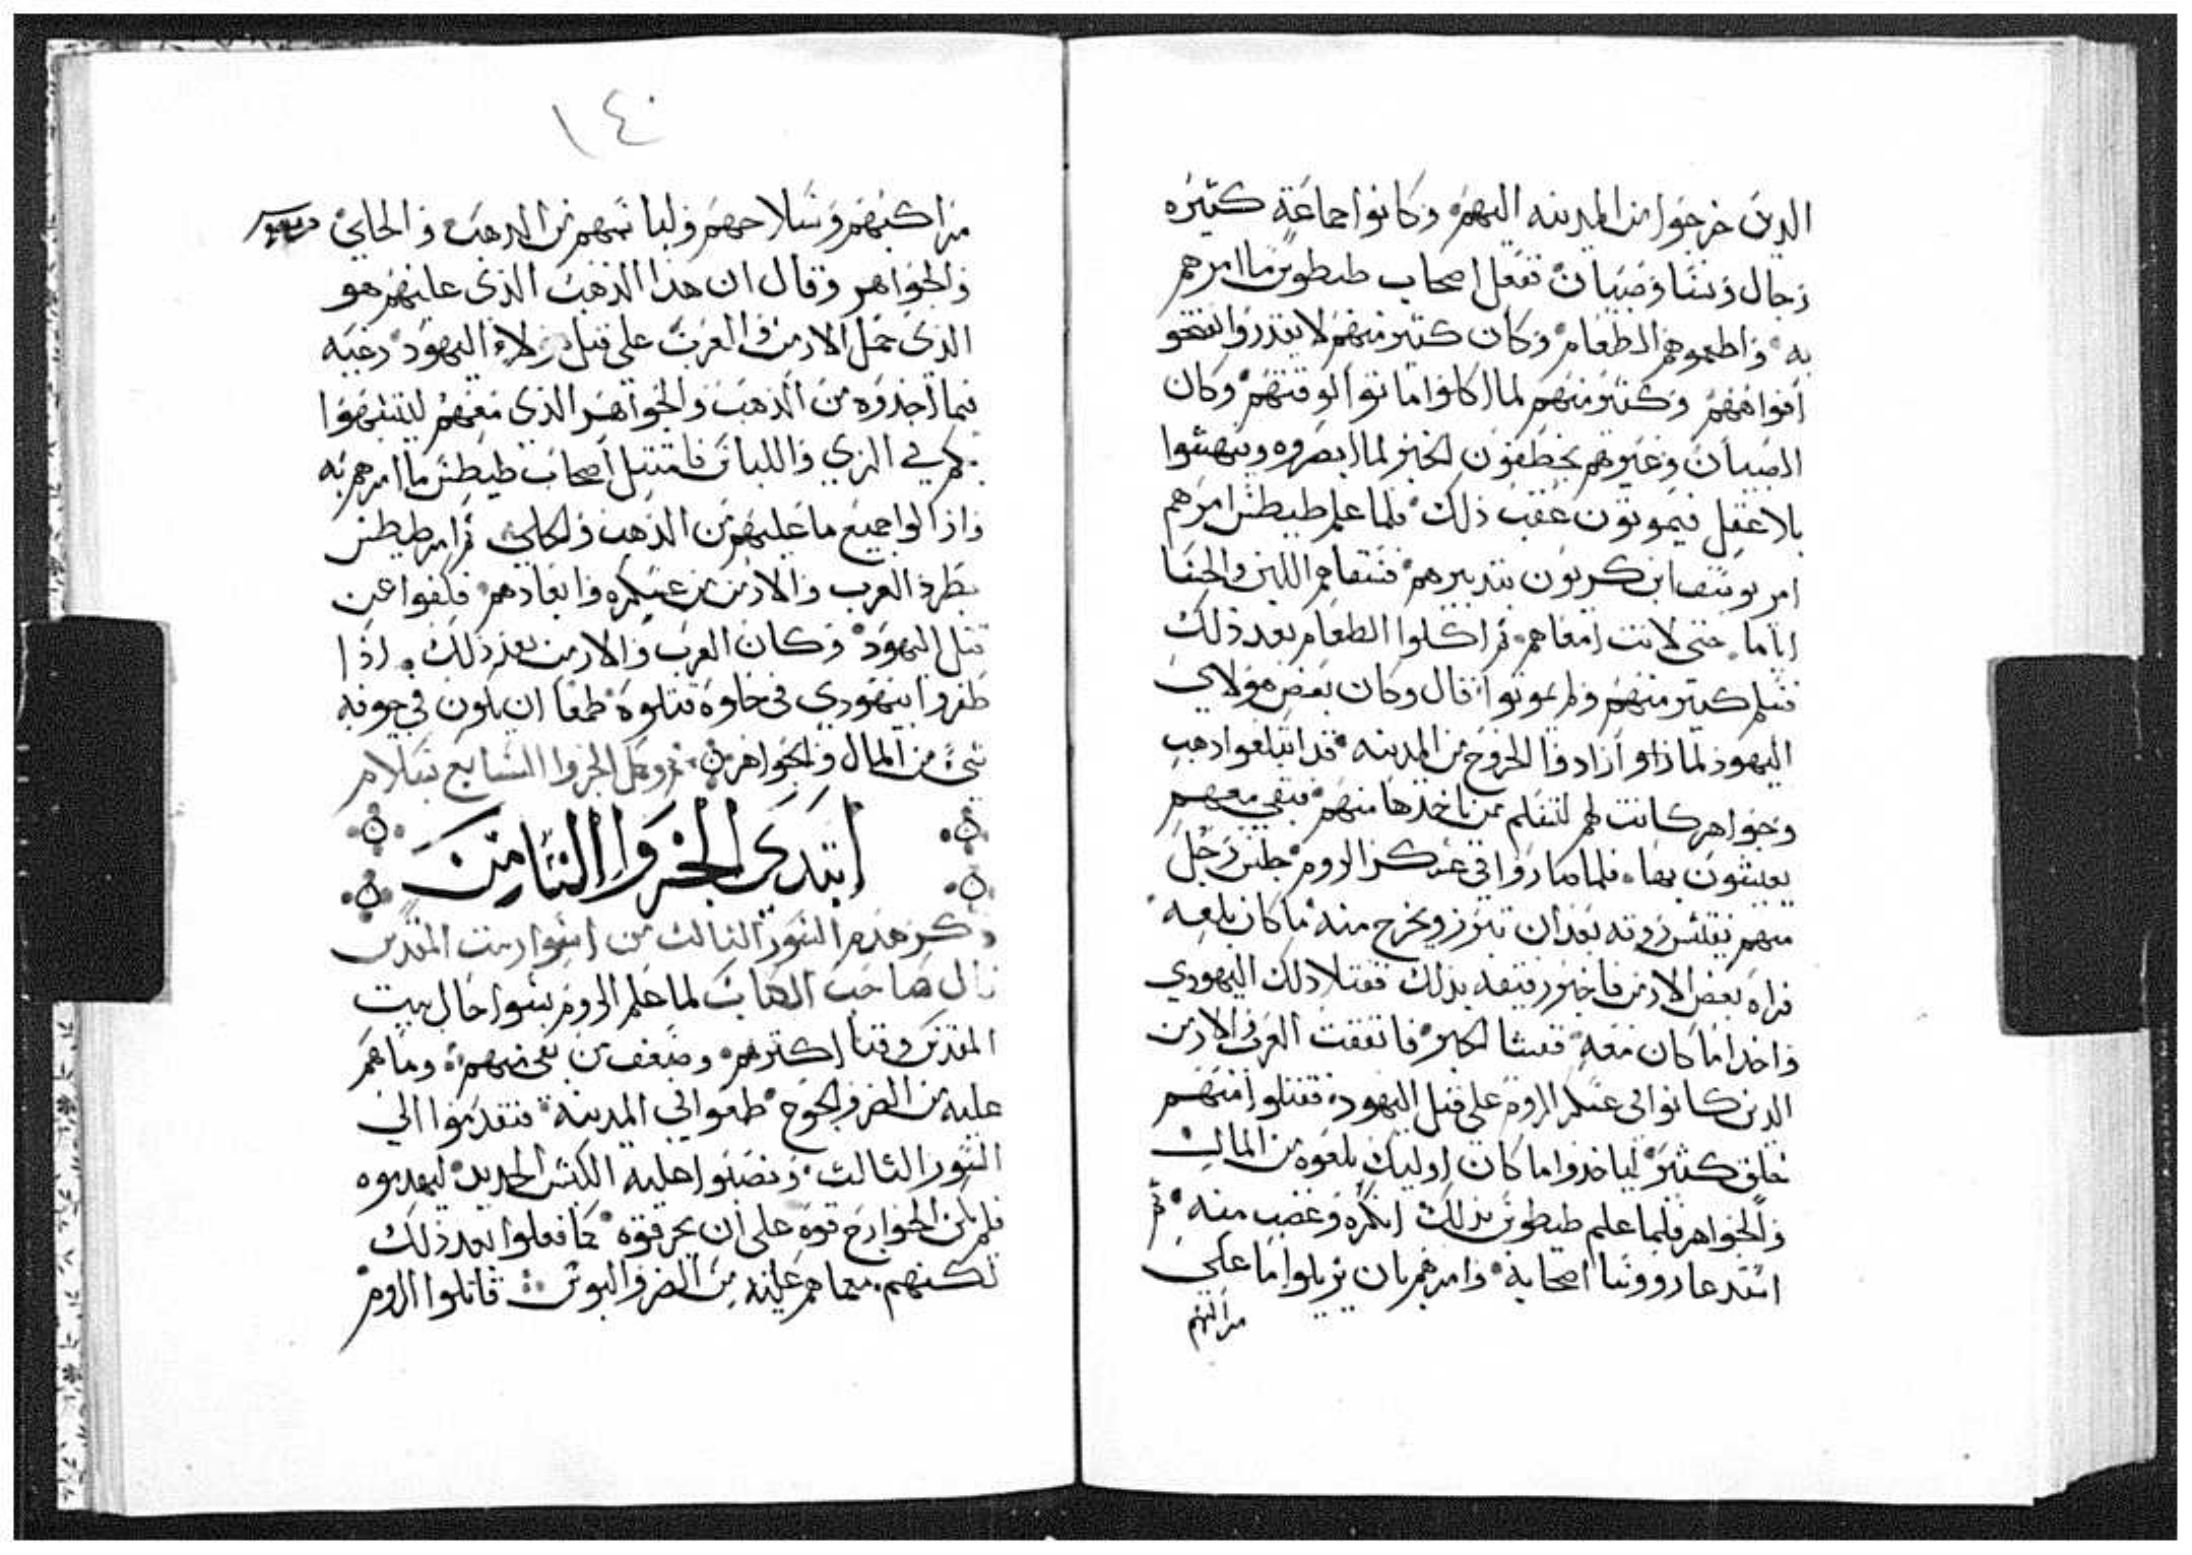 الدين خرجوا من المدينه اليهم وكانوا جماعة كثيره
رجال ونسا وصبيان ففعل اصحاب طيطوس ما امرهم
به واطعموهم الطعام وكان كثير منهم لا يقدروا يفتحو
افواههم وكثير منهم لما اكلوا ماتوا لوقتهم وكان
الصبيان وغيرهم يخطفون الخبز لما ابصروه وينهشوا
بلا عقل فيموتون عقب ذلك فلما علم طيطس امرهم
امر يوسف ابن كريون بتدبيرهم فسقاهم اللبن والحسا
اياما حتى لانت امعاهم ثم اكلوا الطعام بعد ذلك
فسلم كثير منهم ولم يموتوا قال وكان بعض هولاي
اليهود لما ارادوا الخروج من المدينه قد ابتلعوا دهب
وجواهر كانت لهم لتسلم ممن ياخدها منهم فيبقي معهم
يعيشون بها فلما صاروا في عسكر الروم جلس رجل
منهم يفتش روثه بعد ان تبرز ويخرج منه ما كان بلعه
فراه بعض الارمن فاخبر رفيقه بدلك فقتلا دلك اليهودي
واخدا ما كان معه ففشا الخبر فاتفقت العرب والارمن
الدين كانوا في عسكر الروم على قتل اليهود فقتلوا منهم
خلق كثير لياخدوا ما كان اوليك بلعوه من المال
والجواهر فلما علم طيطوس بدلك انكره وغضب منه ثم
استدعا روسا اصحابه وامرهم بان يزيلوا ما على
مراكبهم
١٤٠
مراكبهم وسلاحهم ولباسهم من الدهب والحلي
والجواهر وقال ان هدا الدهب الذى عليهم هو
الذى حمل الارمن والعرب على قتل اليهود رغبه
فيما اخدوه من الدهب والجواهر الذى معهم ليتشبهوا
بكم في الزي واللباس فامتثل اصحاب طيطس ما امرهم به
وازالوا جميع ما عليهم من الدهب والحلي ثم امر طيطس
بطرد العرب والارمن من عسكره وابعادهم فكفوا عن
قتل اليهود وكان العرب والارمن بعد ذلك اذا
ظفروا بيهودي في خلوة قتلوه طمعا ان يكون في جوفه
شئ من المال والجواهر تم وكمل الجزوا السابع بسلام
ابتدى الجزوا الثامن
ذكر هدم السور الثالث من اسوار بيت المقدس
قال صاحب الكتاب لما علم الروم بسوا حال بيت
المقدس وفنا اكثرهم وضعف من بقى منهم وما هم
عليه من الضر والجوع طمعوا في المدينه فتقدموا الى
السور الثالث ونصبوا عليه الكبش الحديد ليهدموه
فلم يكن للخوارج قوة على ان يحرقوه كما فعلوا بعد ذلك
لكنهم مع ما هم عليه من الضر والبوس قاتلوا الروم